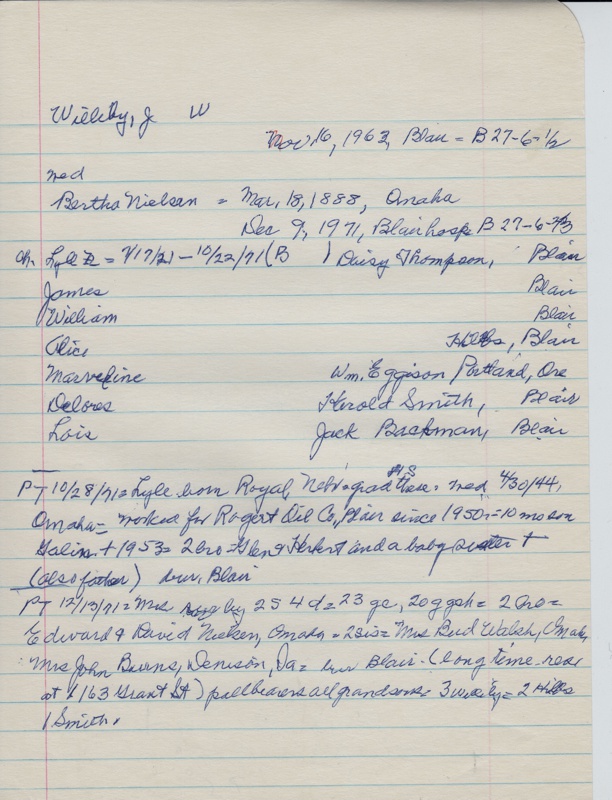 Willeby, J W
Nov. 16, 1963, Blair = B 27-6-1/2
med
Bertha Nielsen = Mar, 18, 1888, Omaha
Dec 9, 1971, Blair hosp B 27-6-
Ch. Lyle = 7/17/21 - 10/22/71 (B ) Daisy Thompson, Blair
James Blair
William Blair
Alice Hilbs, Blair
Marveline Wm. Eggison Portland, Ore
Delores Herold Smith, Blair
Lois Jack Backman, Blair
PT 10/28/71 = Lyle born Royal, Nebr = grad HS there = med 4/30/44,
Omaha = worked for Rogert Oil Co, Blair since 1950 = 10 mo son
+ 1953 = 2 bro = Glen & Herbert and a baby sister +
(also father) bur. Blair
PT 12/13/71 = Mrs by 2 S 4 d = 23 gc, 20 ggch = 2 bro =
Edward & David Nielsen, Omaha = 2 sis = Mrs Bud Walsh, Omaha,
Mrs John Burns, Denison, Ia = bur Blair. (long time res
at 1163 Grant St) pallbearers all grandsons = 3 = 2 Hilbs
1 Smith.